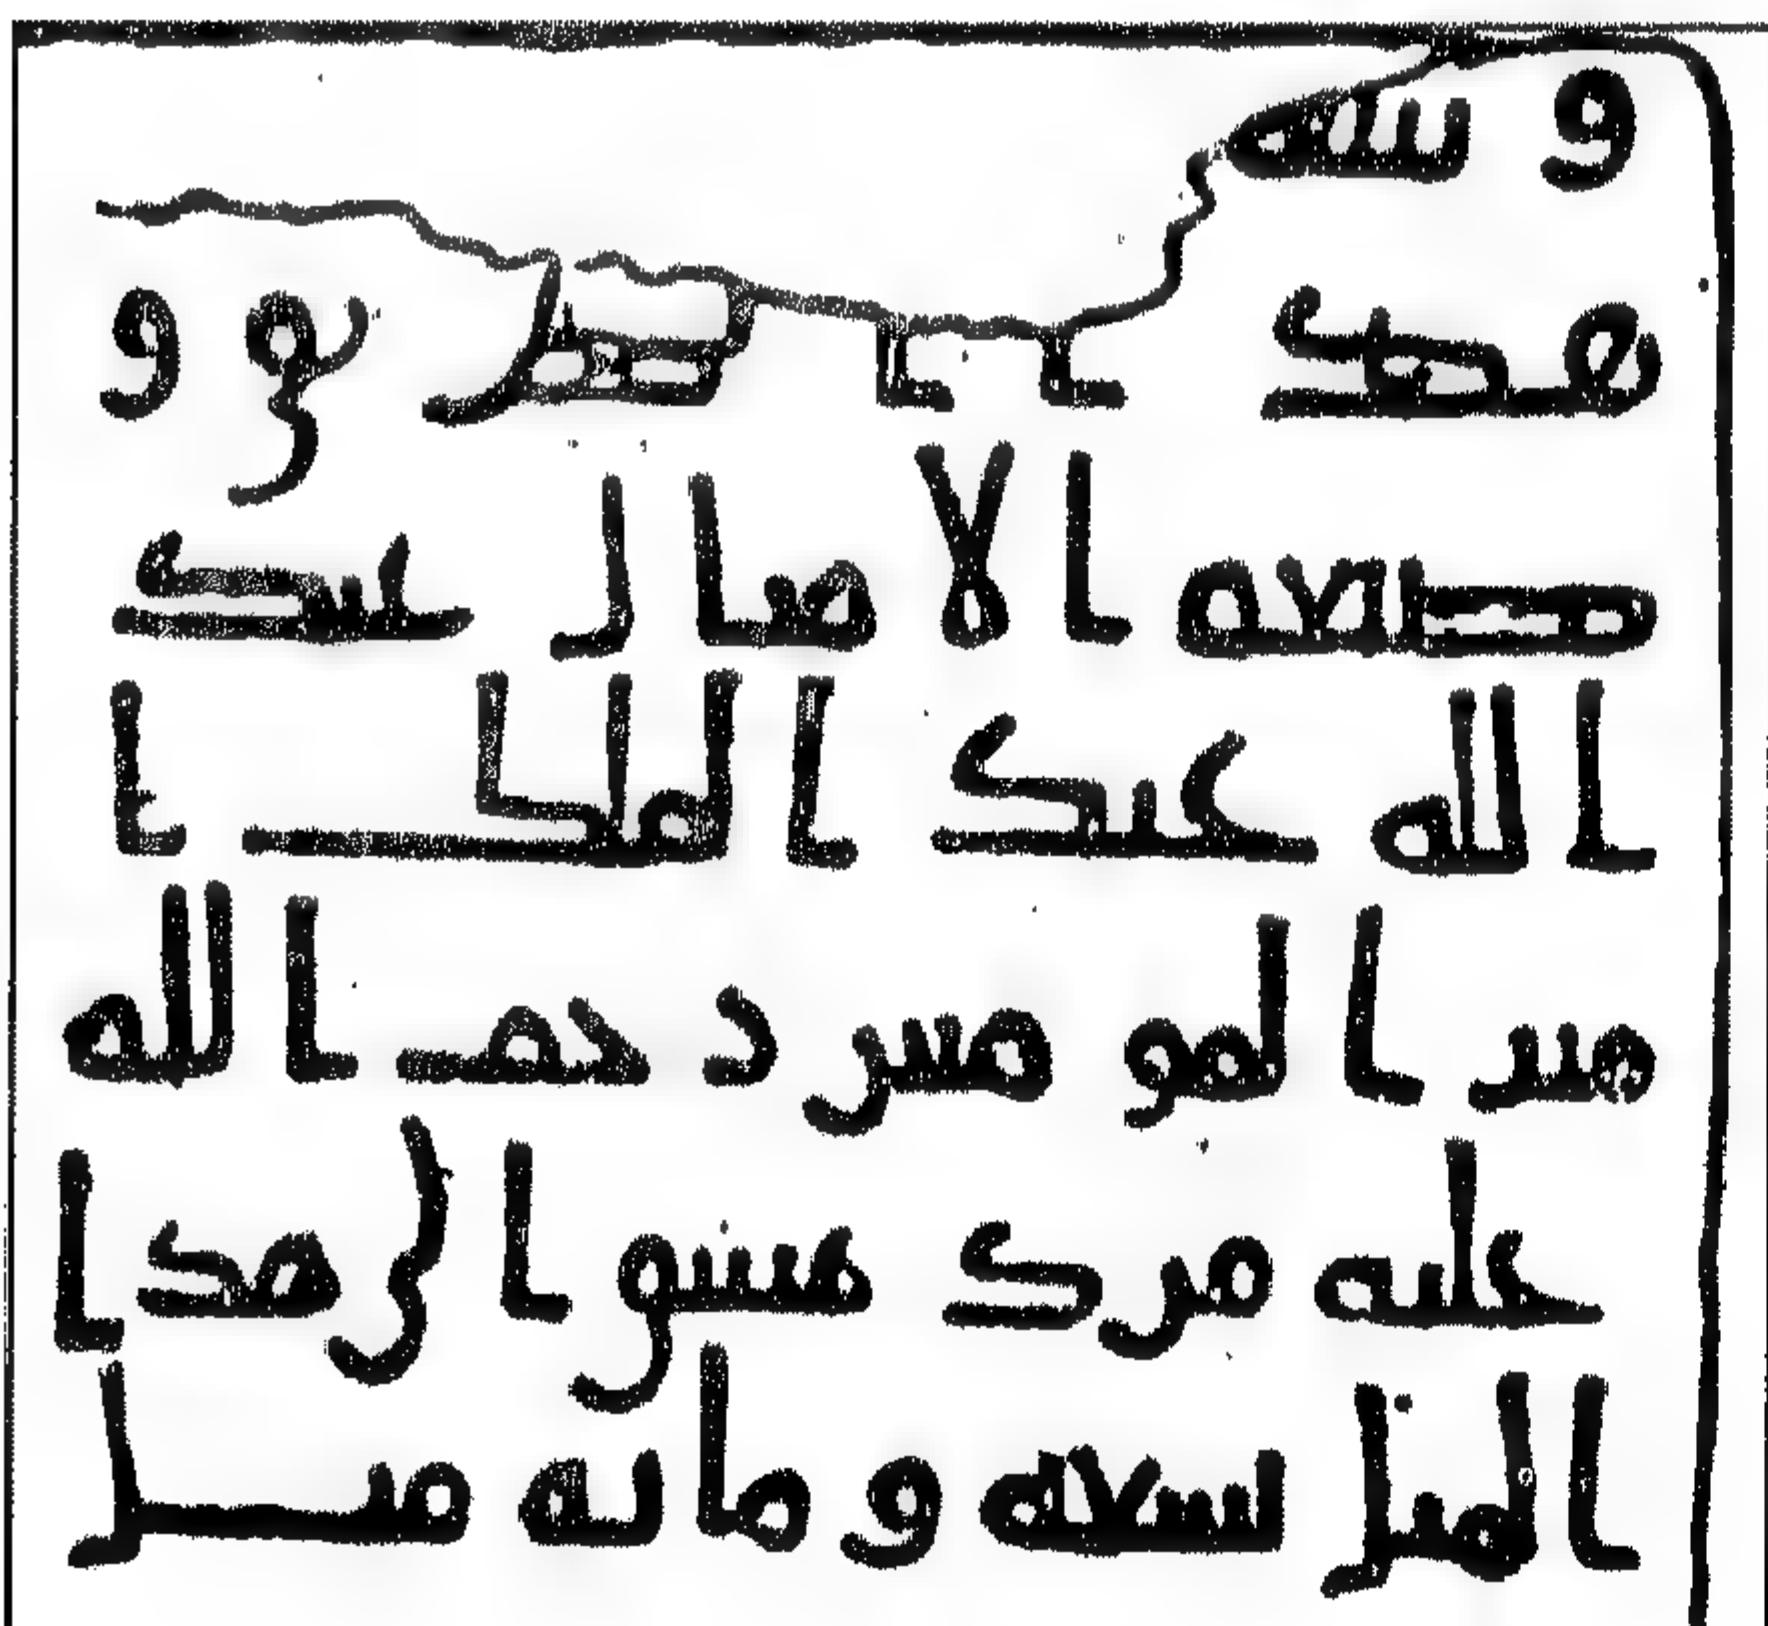 الطريق و
صنعة الاميال عبد
الله عبد الملك ا
مير المومنين رحمت الله
عليه من دمشق الى هذا
الميل تسعة و مائة ميل